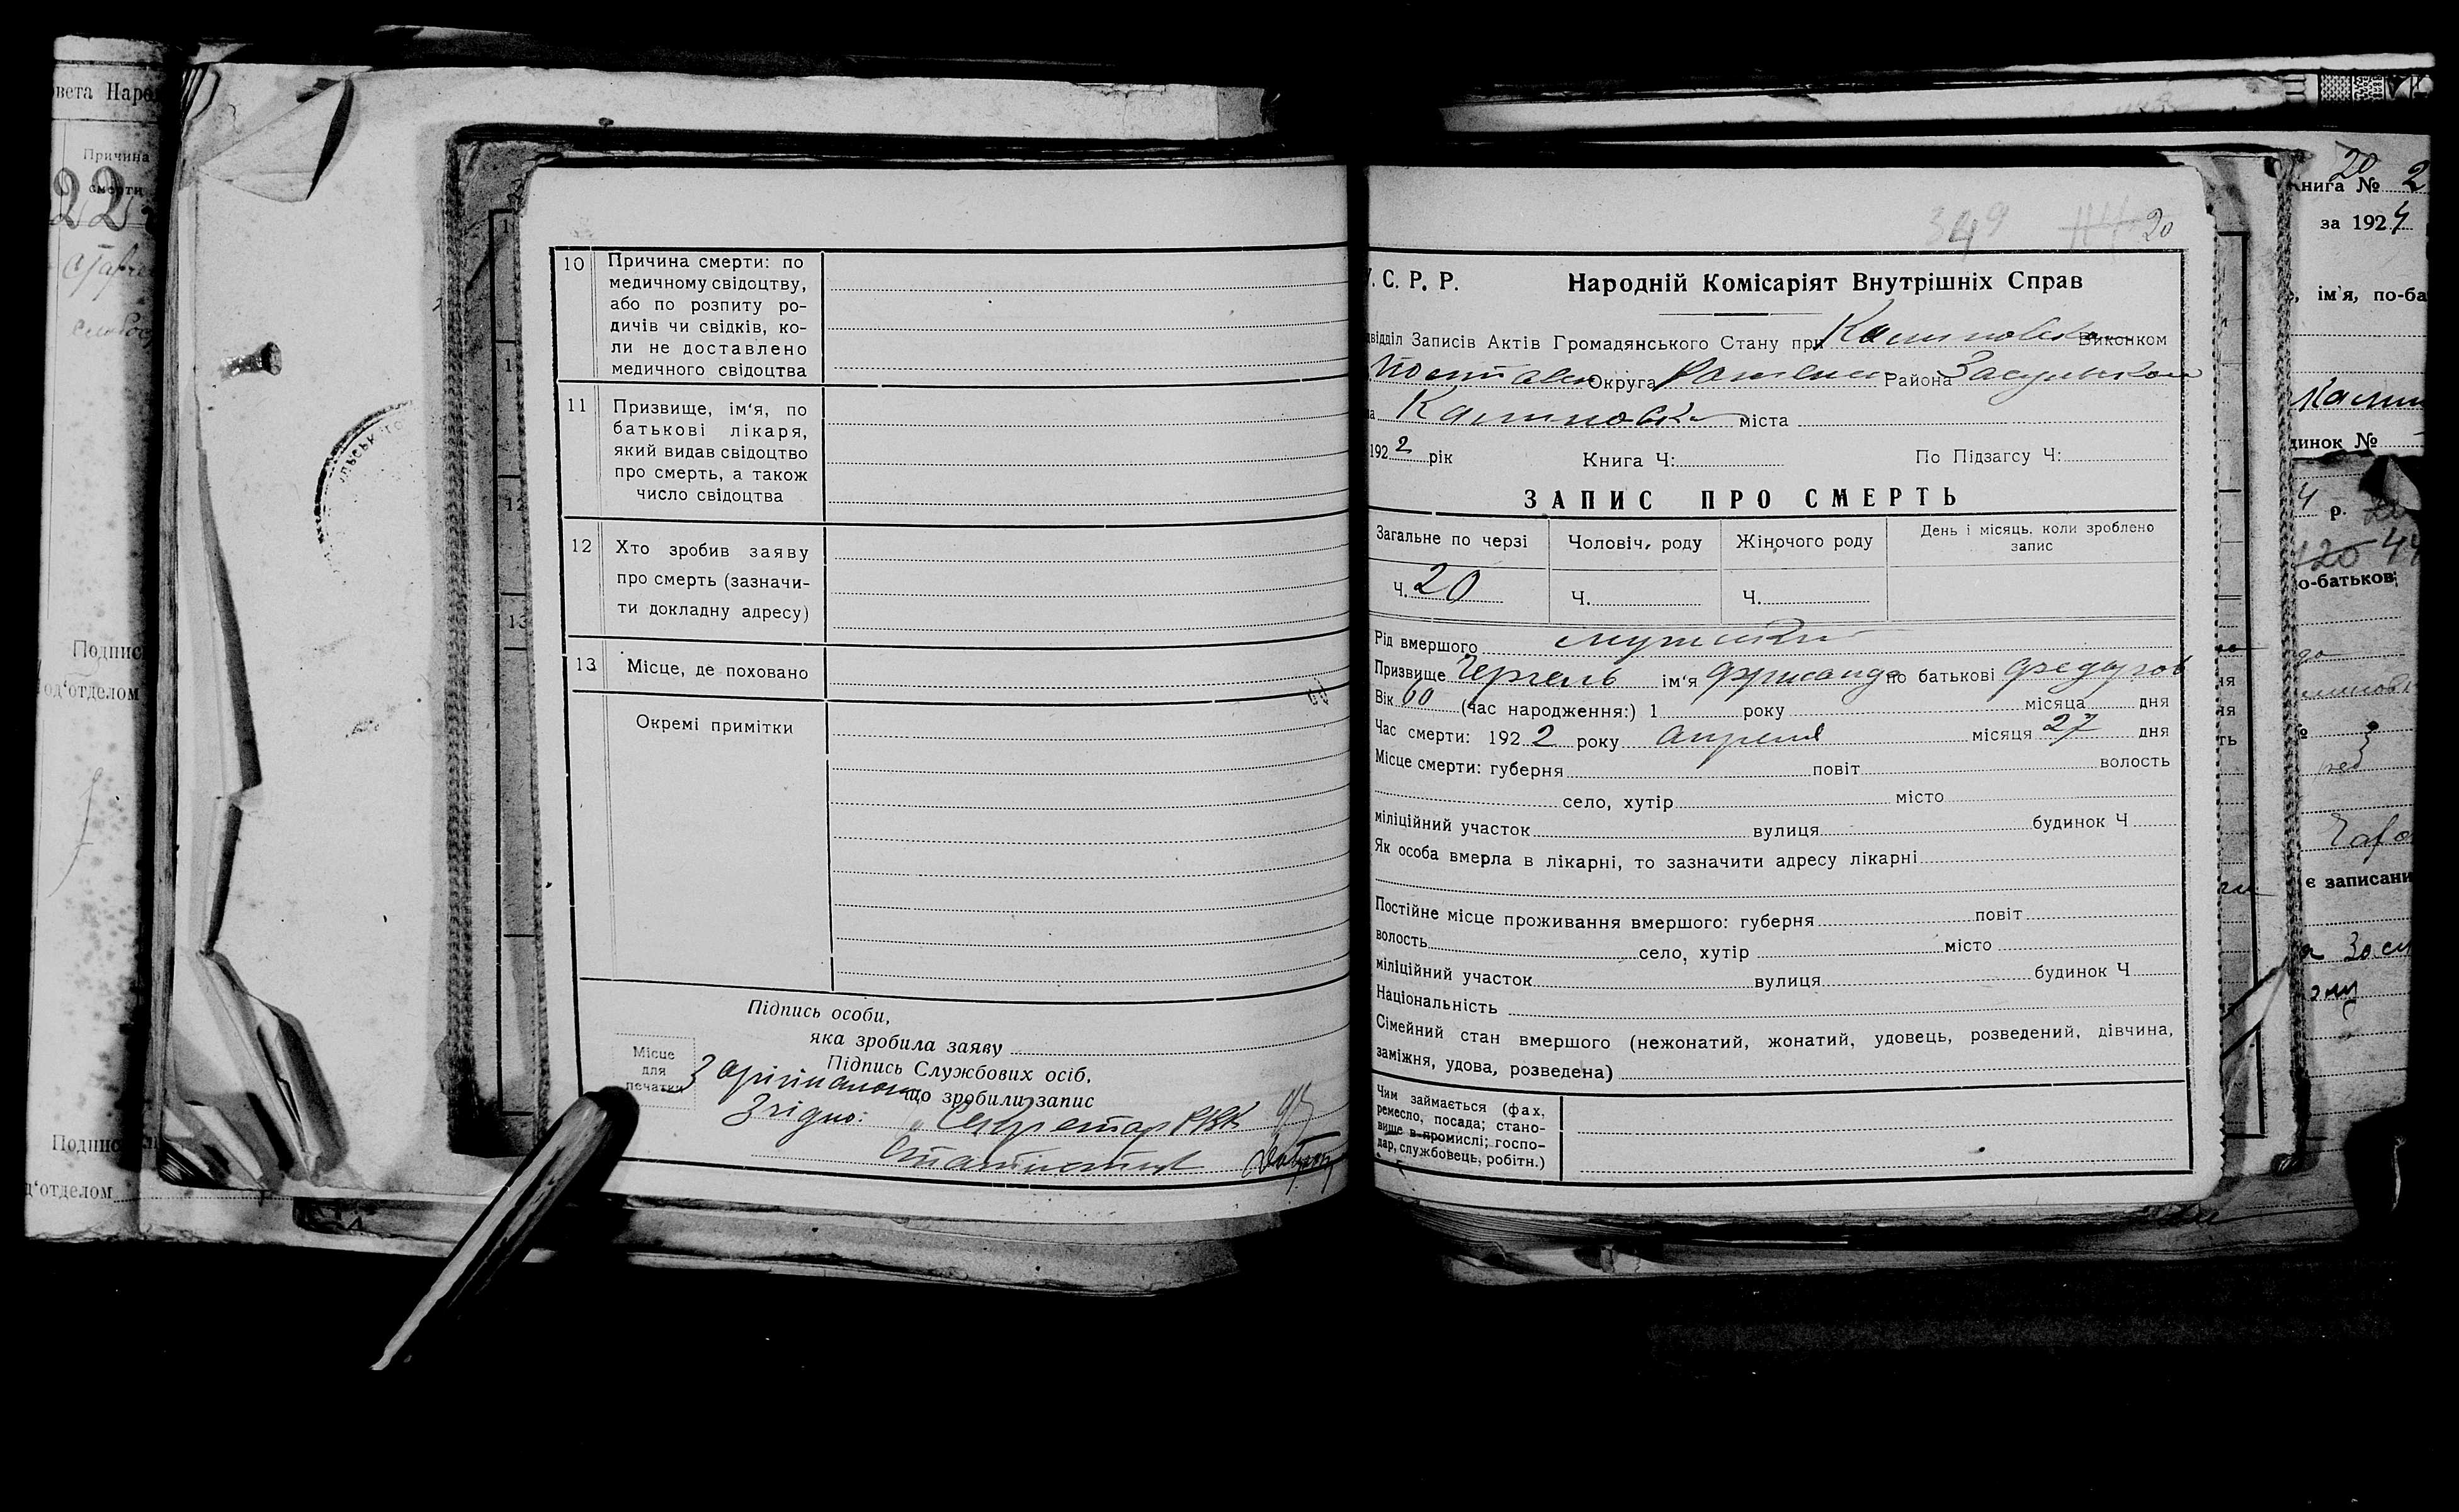 вета Наро
Причина
смерти
22
Подпис
од'отделом
Подпис
д'отделом
10 Причина смерти: по
медичному свідоцтву,
або по розпиту ро-
дичів чи свідків, ко-
ли не доставлено
медичного свідоцтва
11 Призвище, ім'я, по
батькові лікаря,
який видав свідоцтво
про смерть, а також
число свідоцтва
12 Хто зробив заяву
про смерть (зазначи-
ти докладну адресу)
13 Місце, де поховано
Окремі примітки
Підпись особи,
яка зробила заяву
Місце
для
печатки
Підпись Службових осіб,
З орігіналом що зробили запис
Згідно: Секретар РВК
Статистик
349 20
У. С. Р. Р. Народній Комісаріят Внутрішніх Справ
двідділ Записів Актів Громадянського Стану при Калиновском Виконком
Полтавск Округа Роменск Района Засульском
ла Калиновка міста
1922 рік Книга Ч: По Підзагсу Ч:
ЗАПИС ПРО СМЕРТЬ
Загальне по черзі Чоловіч. роду Жіночого роду День і місяць, коли зроблено
запис
Ч. 20 Ч. Ч.
Рід вмершого мужски
Призвище ім'я по батькові
Вік 60 (час народження:) 1 року місяця дня
Час смерти: 1922 року апреля місяця 27 дня
Місце смерти: губерня повіт волость
село, хутір місто
міліційний участок вулиця будинок Ч
Як особа вмерла в лікарні, то зазначити адресу лікарні
Постійне місце проживання вмершого: губерня повіт
волость село, хутір місто
міліційний участок вулиця будинок Ч
Національність
Сімейний стан вмершого (нежонатий, жонатий, удовець, розведений, дівчина,
заміжня, удова, розведена)
Чим займається (фах,
ремесло, посада; стано-
вище в промислі; госпо-
дар, службовець, робітн.)
20
нига № 2
за 1924
, ім'я, по-ба
Калин
динок №
4 р.
о-батьков
є записани